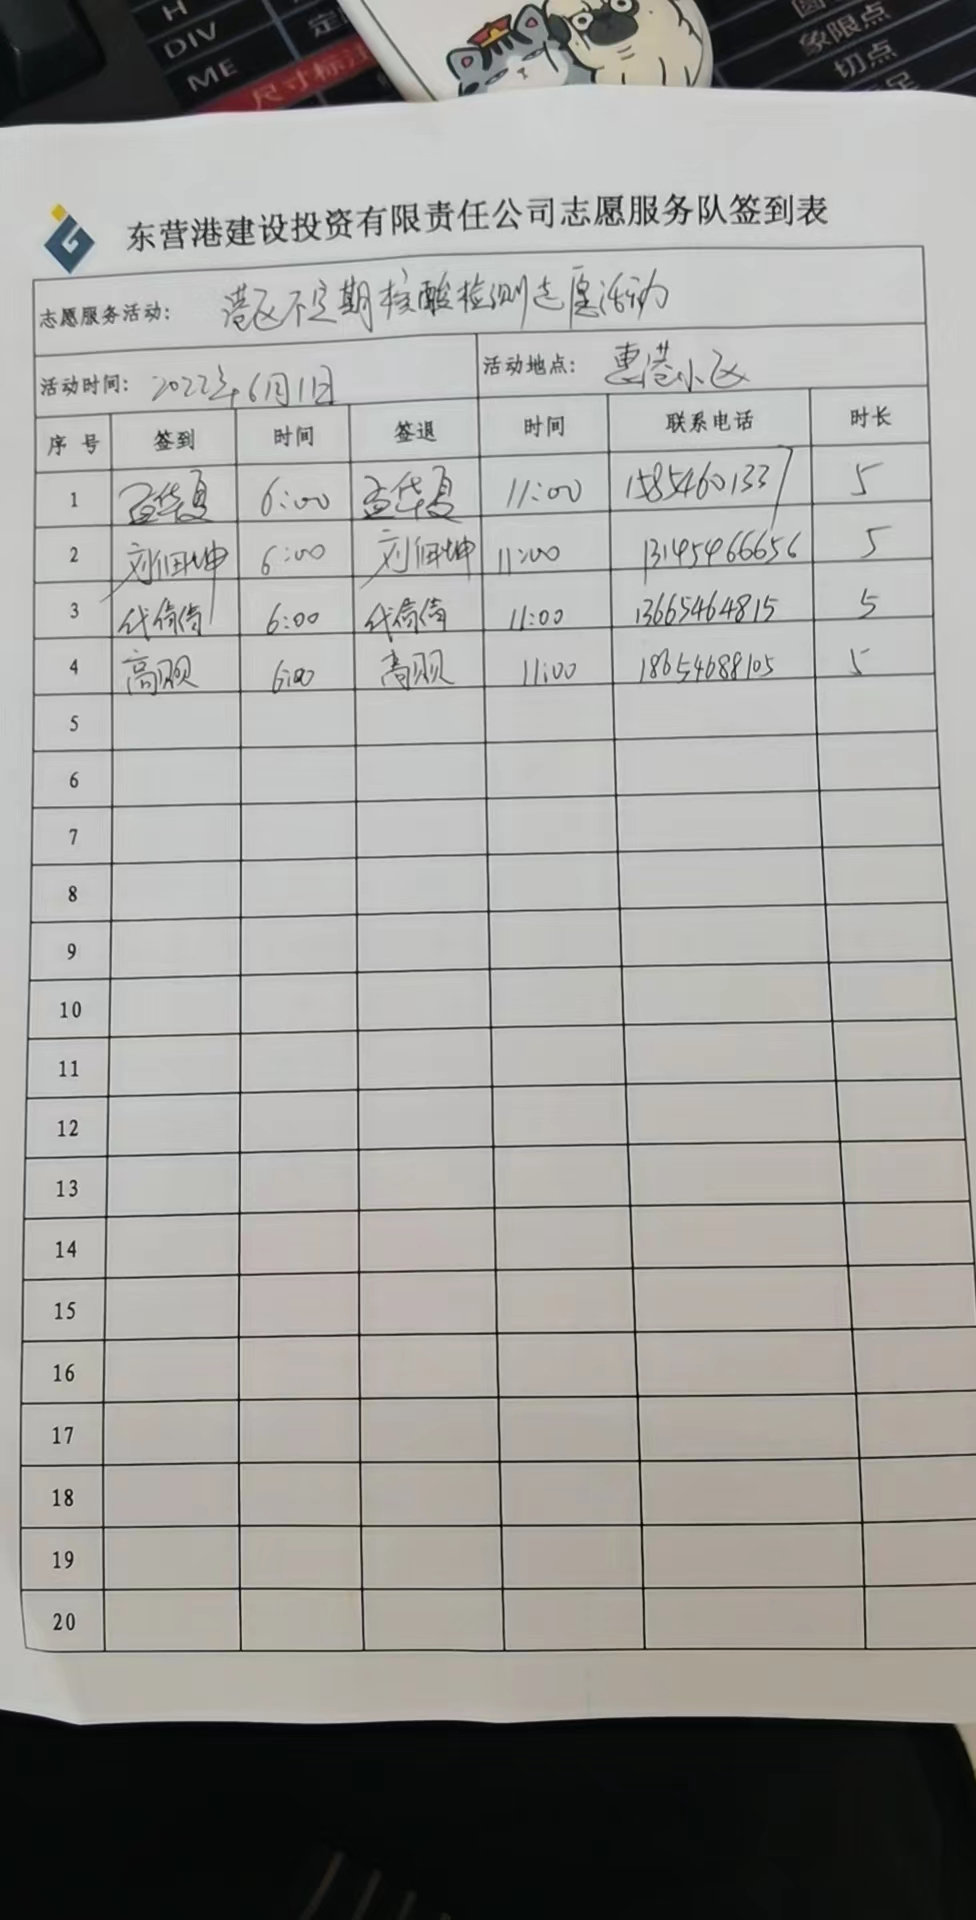 H
DIV
定
ME
尺寸标注
象限点
切点
东营港建设投资有限责任公司志愿服务队签到表
志愿服务活动: 港区不定期核酸检测志愿活动
活动时间: 2022年6月1日 活动地点: 惠港小区
序号 签到 时间 签退 时间 联系电话 时长
1 孟华夏 6:00 孟华夏 11:00 15854601337 5
2 刘佃坤 6:00 刘佃坤 11:00 13145466656 5
3 代倩倩 6:00 代倩倩 11:00 13665464815 5
4 高 6:00 高 11:00 18654688105 5
5
6
7
8
9
10
11
12
13
14
15
16
17
18
19
20